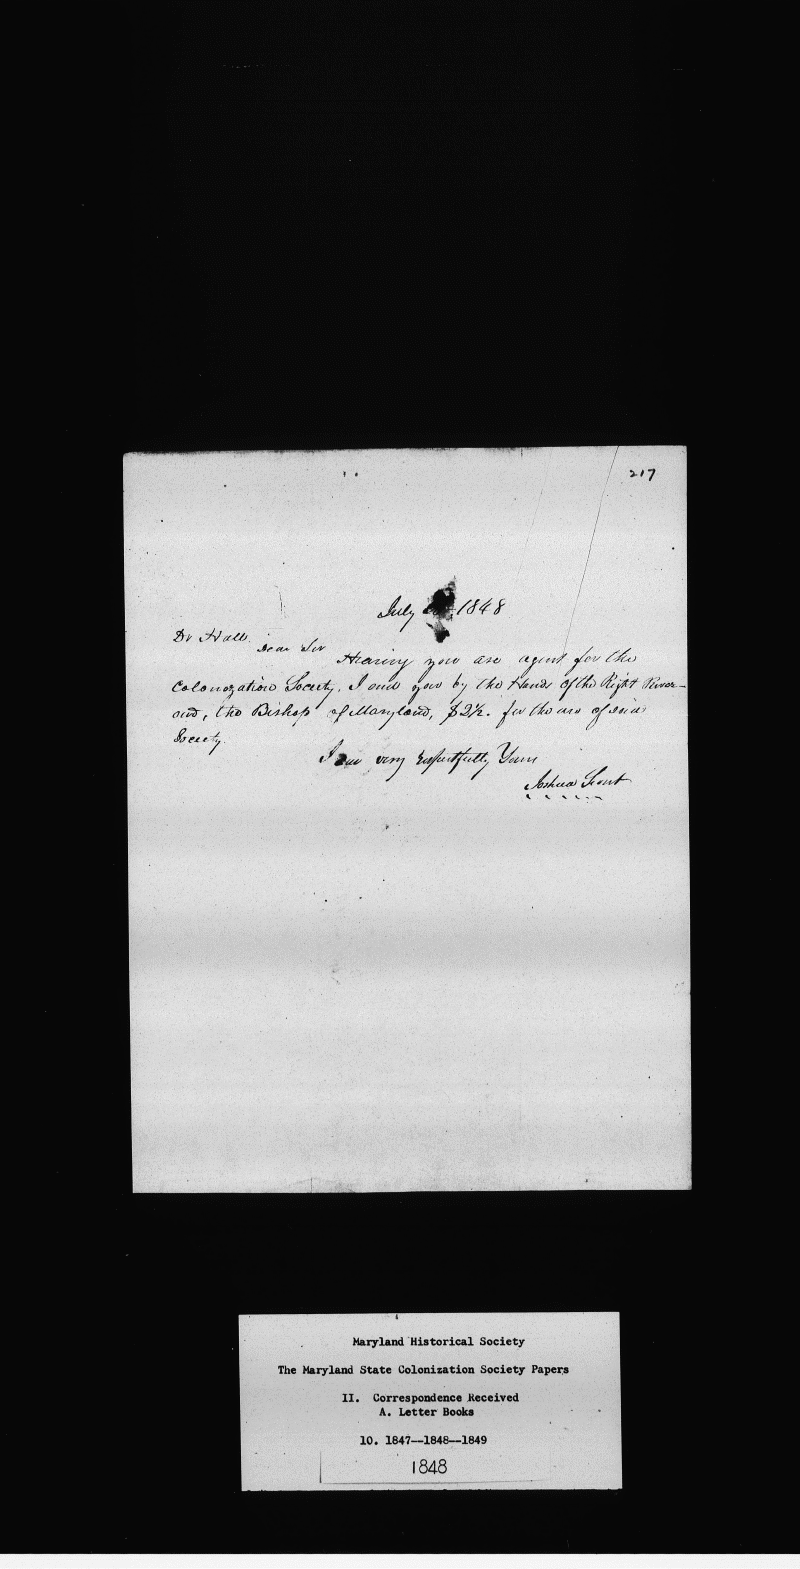 217
July 1848
Dr Hall.
Dear Sir
Hearing you are agent for the
Colonozation Society, I send you by the Hands of the Right Rever-
end, the Bishop of Maryland, $2½. for the use of said
Society.
I am very respectfully Yours
Joshua
Maryland Historical Society
The Maryland State Colonization Society Papers
II. Correspondence Received
A. Letter Books
10. 1847--1848--1849
1848